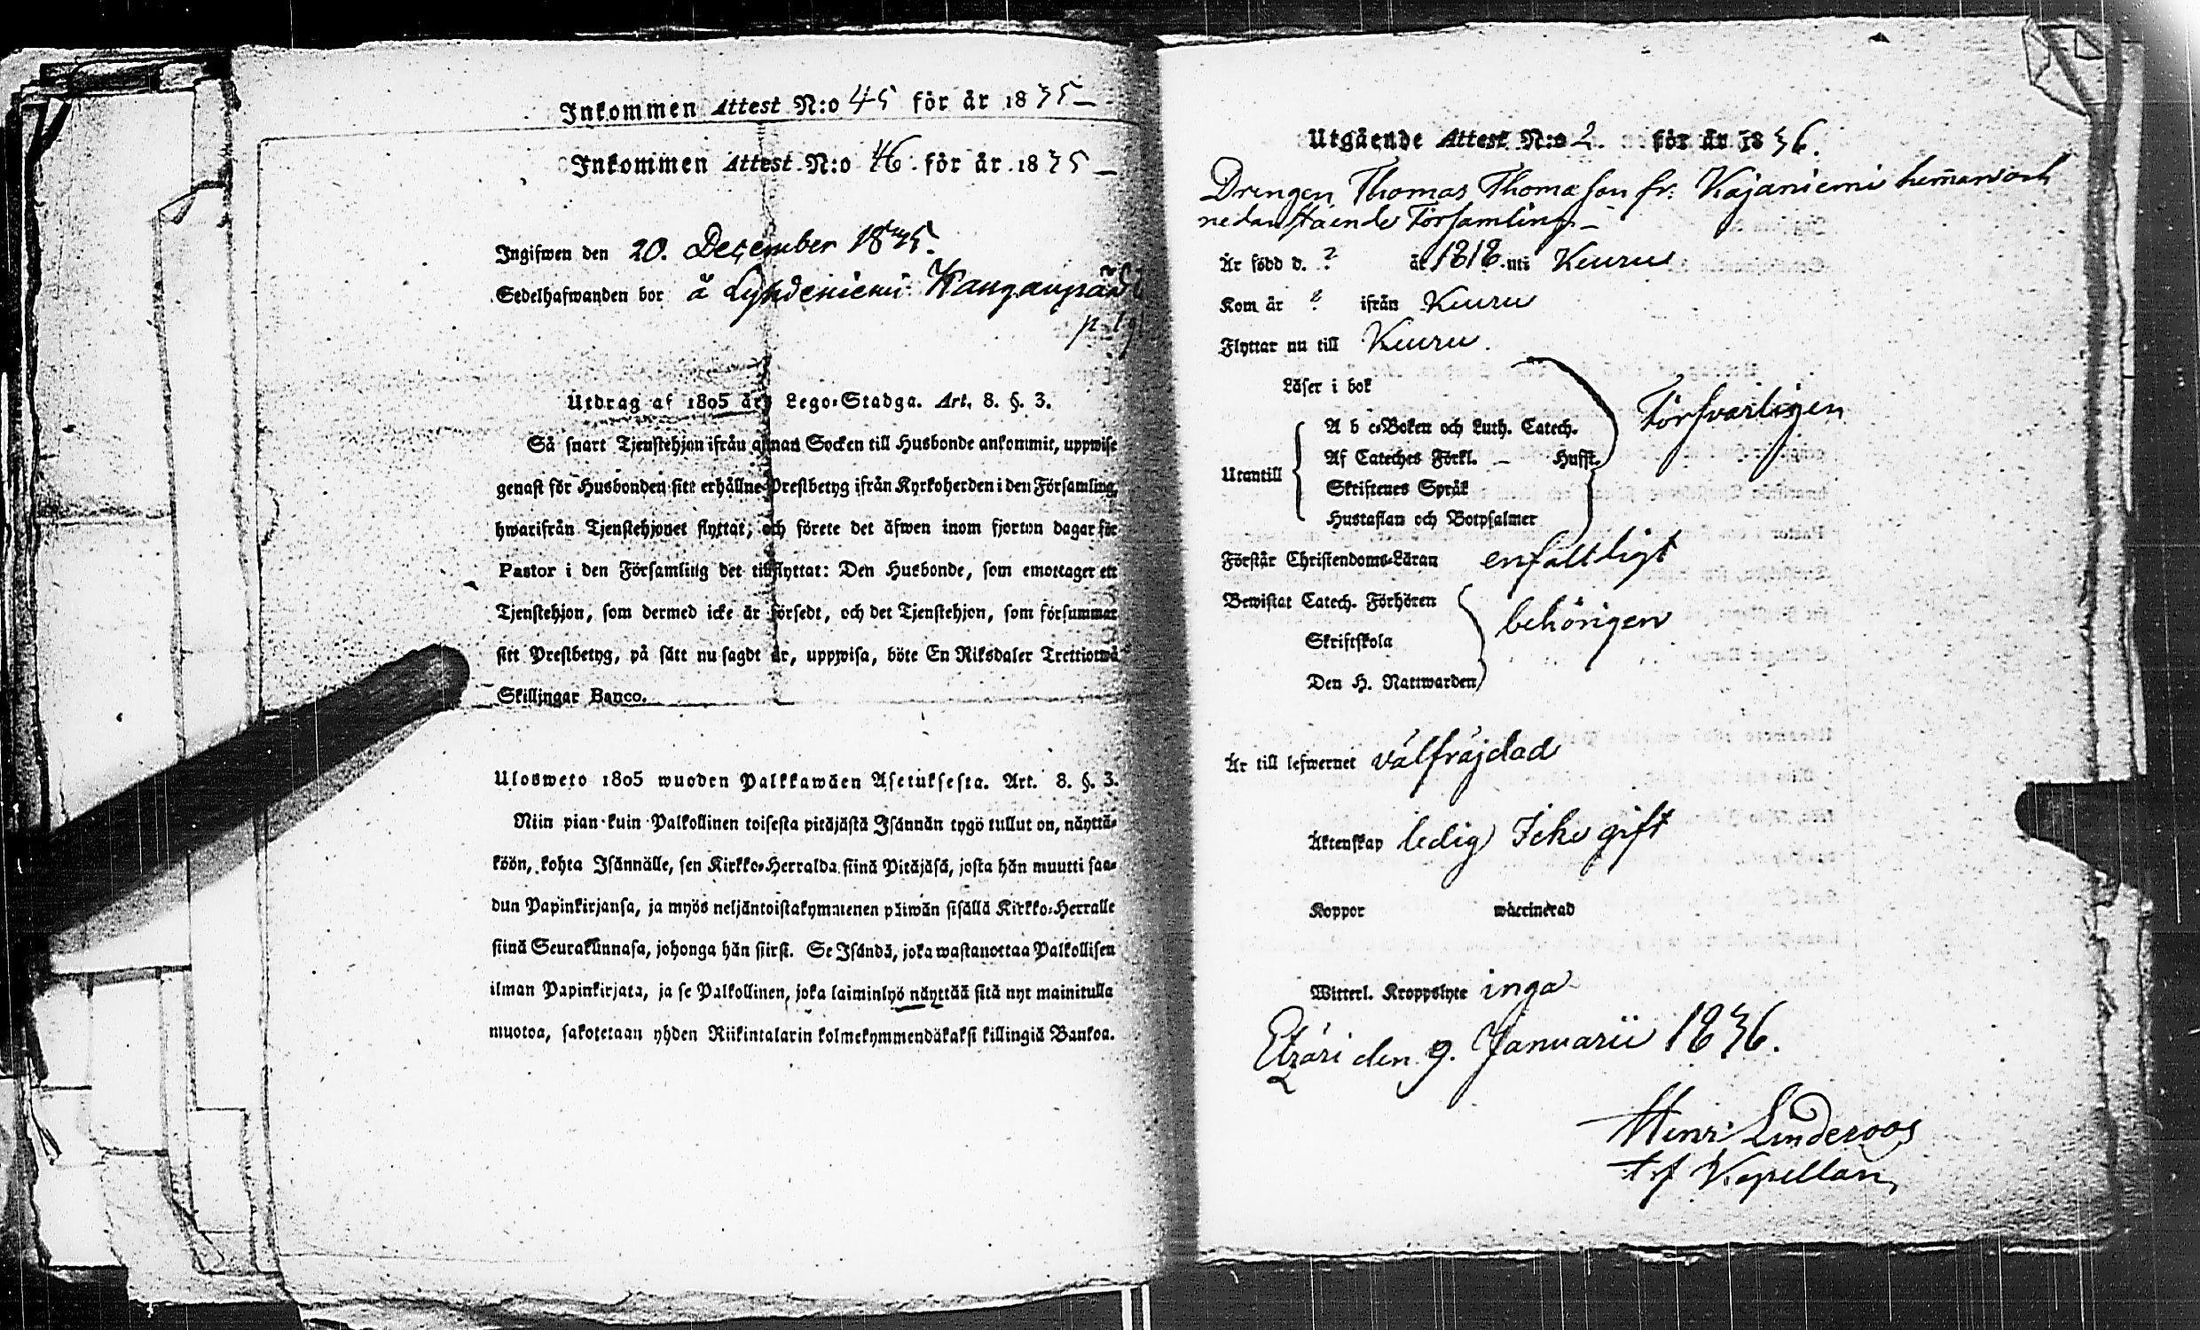 Inkommen Attest N:o 45 för år 1835 –
Inkommen Attest N:o 46 för år 1835 –
Ingifwen den 20. December 1835.
Sedelhafwanden bor å Lyhdeniemi Kangaspää
p. 19
Utdrag af 1805 års Lego-Stadga. Art. 8. §. 3.
Så snart Tjenstehjon ifrån annan Socken till Husbonde ankommit, uppwise
genast för Husbonden sitt erhållne Prestbetyg ifrån Kyrkoherden i den Församling,
hwarifrån Tjenstehjonet flyttat; och förete det äfwen inom fjorton dagar för
Pastor i den Församling det tillflyttat: Den Husbonde, som emottager ett
Tjenstehjon, som dermed icke är försedt, och det Tjenstehjon, som försummar
sitt Prestbetyg, på sätt nu sagdt är, uppwisa, böte En Riksdaler Trettiotwå
Skillingar Banco.
Ulosweto 1805 wuoden Palkkawäen Asetuksesta. Art. 8. §. 3.
Niin pian kuin Palkollinen toisesta pitäjästä Isännän tygö tullut on, näyttä-
köön, kohta Isännälle, sen Kirkko-Herralda siinä Pitäjäsä, josta hän muutti saa-
dun Papinkirjansa, ja myös neljäntoistakymmenen päiwän sisällä Kirkko-Herralle
siinä Seurakunnasa, johonga hän siirsi. Se Isändä, joka wastanottaa Palkollisen
ilman Papinkirjata, ja se Palkollinen, joka laiminlyö näyttää sitä nyt mainitulla
muotoa, sakotetaan yhden Riikintalarin kolmekymmendäkaksi killingiä Bankoa.
Utgående Attest N:o 2. för år 1836.
Drengen Thomas Thomasson fr. Kajaniemi hemman och
nedanstående Församling –
Är född d. ? år 1818 uti Keuru
Kom år ? ifrån Keuru
Flyttar nu till Keuru.
Läser i bok
A b c-Boken och Luth. Catech.
Af Cateches Förkl. – Hufst.
Utantill
Skriftenes Språk
Hustaflan och Botpsalmer
Försvarligen
Förstår Christendoms-Läran enfalldigt
Bewistat Catech. Förhören
Skriftskola
Den H. Nattwarden
behörigen
Är till lefwernet välfräjdad
Äktenskap ledig Icke gift
Koppor waccinerad
Witterl. Kroppslyte inga
Etzäri den 9. Januarii 1836.
Henr: Linderoos
t. f. Kapellan,